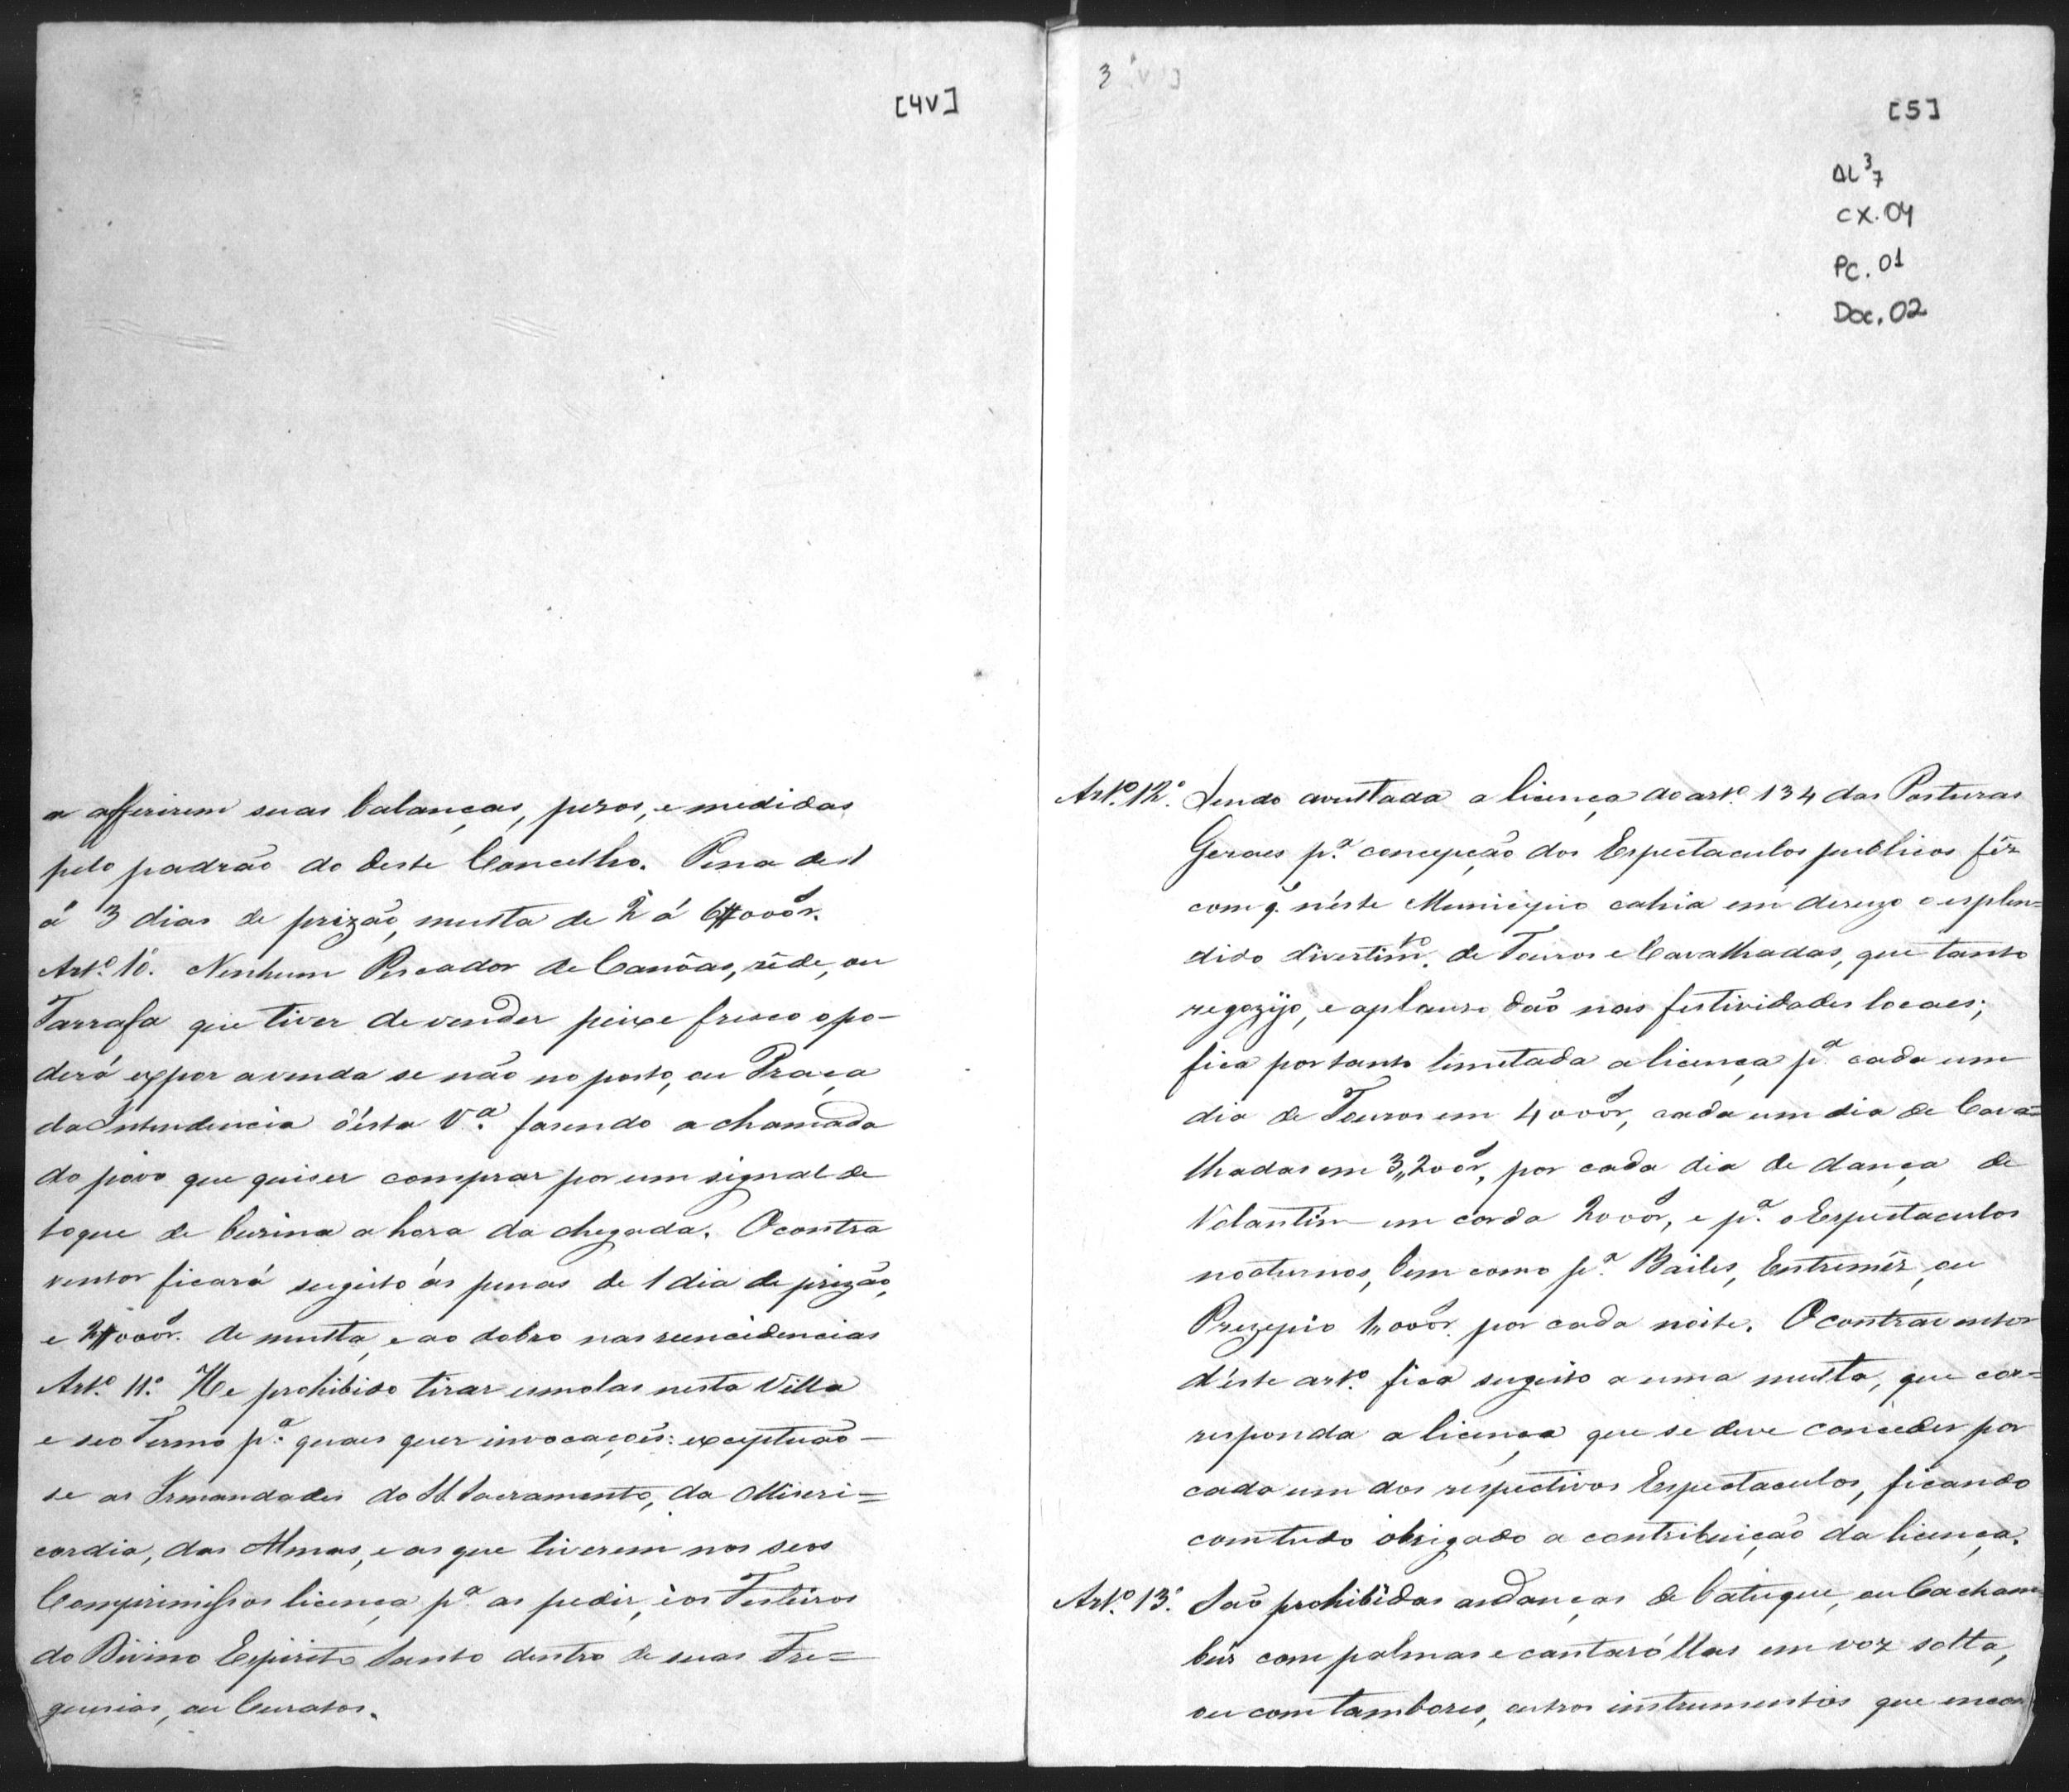 [4v]
a afferirem suas balanças, pezos, e medidas
pelo padrão do deste Concelho. Pena de 1
á 3 dias de prizão, multa de 2 á 6$000r.
Artº. 10. Nenhum Pescador de Canôas, rêde, ou
Tarrafa que tiver de vender peixe fresco o po-
derá expor a venda se não no porto, ou Praça
da Intendencia désta Vª. fasendo a chamada
do povo que quiser comprar por um signal de
toque de buzina a hora da chegada. O contra
ventor ficará sugeito ás penas de 1 dia de prizão,
e 2$000r. de multa, e ao dobro nas reincidencias
Artº. 11º. He prohibido tirar esmolas nesta Villa
e seo Termo pª. quaes quer invocações: exceptuão-
se as Irmandades do SS. Sacramento, da Miseri=
cordia, das Almas, e as que tiverem nos seos
Comprimissos licença pª. as pedir, e os Festeiros
do Divino Espirito Santo dentro de suas Fre=
guesias, ou Curatos.
3
[5]
AL³7
CX. 04
PC. 01
Doc. 02
Artº. 12º. Sendo avultada a licença do artº. 134 das Posturas
Geraes pª. concepção dos Espectaculos publicos fêz
com q. néste Municipio cahia em desuzo o esplen=
dido divertimto. de Touros e Cavalhadas, que tanto
regozijo, e aplauso dão nas festividades locaes;
fica por tanto limitada a licença pª. cada um
dia de Touros em 4000r, cada um dia de Cava=
lhadas em 3,,200r, por cada dia de dança de
Volantim em corda 2000r, e pª. o Espectaculos
nocturnos, bem como pª. Bailes, Entremêz, ou
Prezepio 1,,000r. por cada noite. O contraventor
déste artº. fica sugeito a uma multa, que cor=
responda a licença que se deve conceder por
cada um dos respectivos Espectaculos, ficando
comtudo obrigado a contribuição da licença.
Artº. 13º. São prohibidas as danças de batuque, ou Cacham
bús com palmas e cantaróllas em voz solta,
ou com tambores, outros instrumentos que